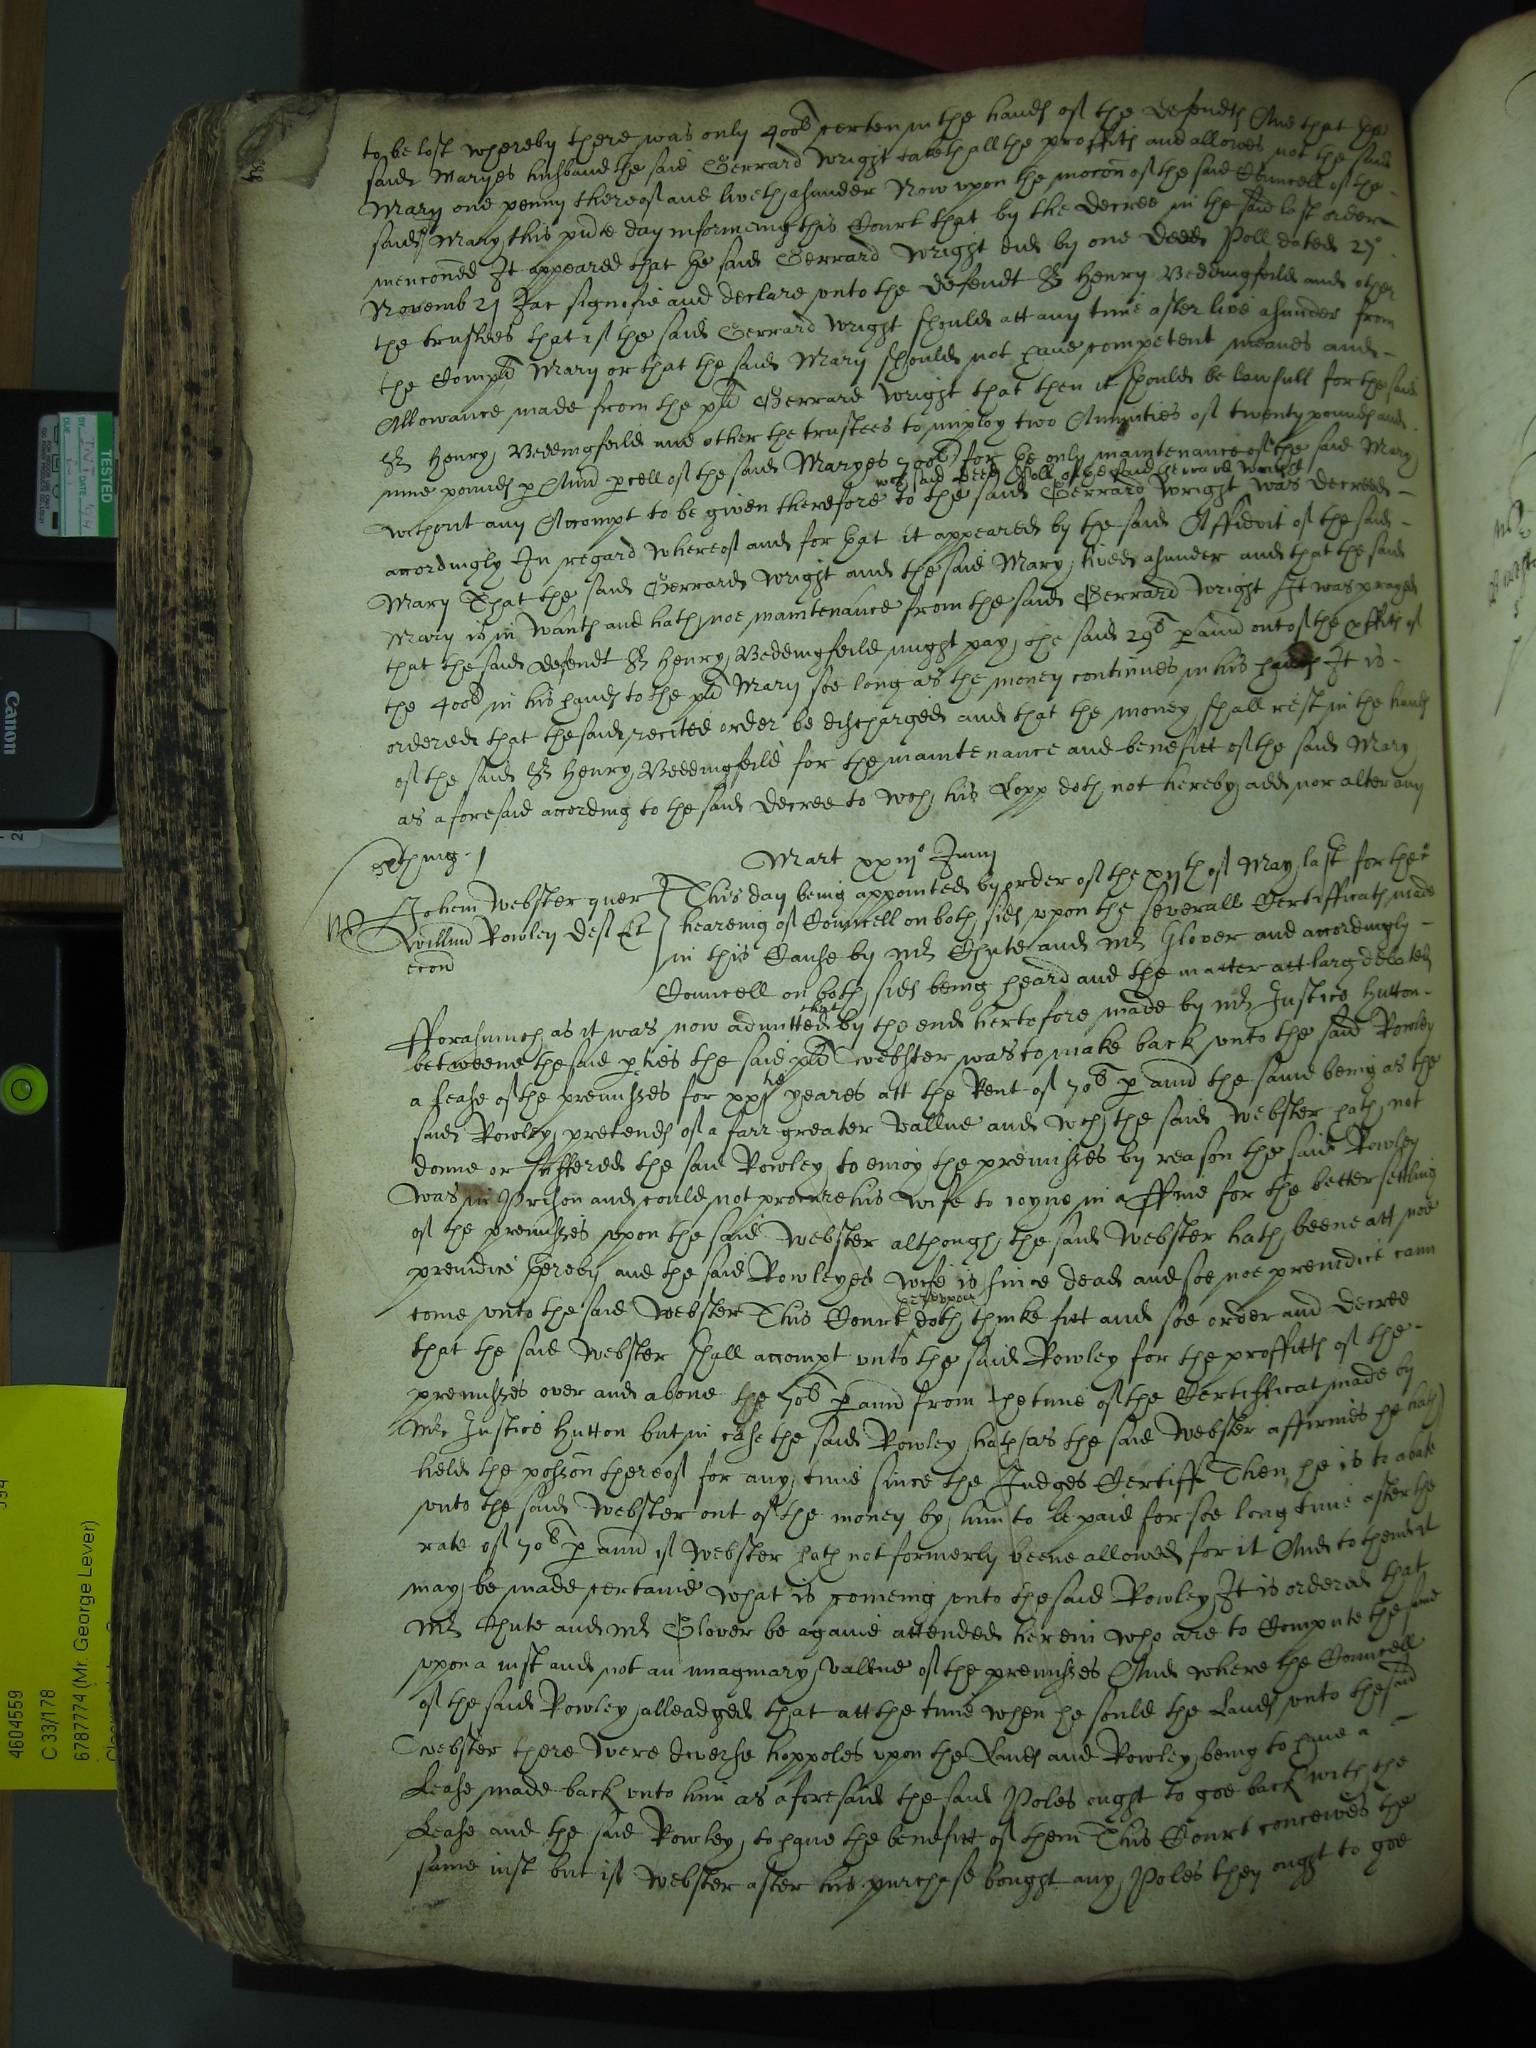 to be lost whereby there was only 400li certen in the hands of the defendts And that the
said Maryes husband the said Gerrard Wright taketh all the proffitts and allowes not the said
Mary one penny thereof and liveth asunder Now upon the mocon of the said Councell of the
said Mary this pnte day informeing this Court that by the decree in the said last order
menconed It appeared that he said Gerrard Wright did by one deed Poll dated 27o
Novemb 21 Jac signifie and declare unto the defendt Sr Henry Beddingfeild and other
the trustees that if the said Gerrard Wright should att any time after live asunder from
the Complt Mary or that the said Mary should not have competent meanes and
Allowance made from the plt Gerrard Wright that then it should be lawfull for the said
Sr Henry Beddingfeild and other the trustees to imploy two Annuities of twenty pounds and
nine pounds p Annu pcell of the said Maryes 700li for the only maintenance of the said Mary
wch said deed Poll of the said Gerrard Wright
without any Accompt to be given therefore to the said Gerrard Wright was decreed
accordingly In regard whereof and for that it appeared by the said Affidvit of the said
Mary That the said Gerrard Wright and the said Mary lived asunder and that the said
Mary is in Wants and hath noe maintenance from the said Gerrard Wright It was prayed
that the said defendt Sr Henry Beddingfeild might pay the said 29li p ann out of the pffitts of
the 400li in his hands to the plt Mary soe long as the money continues in his hands It is
ordered that the said recited order be discharged and that the money shall rest in the hands
of the said Sr Henry Beddingfeild for the maintenance and benefitt of the said Mary
as aforesaid according to the said decree to wch his Lopp doth not hereby add nor alter any
thing
Mart xxiijo Junij
Johem Webster quer
Willum Rowley def Et
econt
This day being appointed by order of the xijth of May last for the
heareing of Councell on both sides upon the severall Certifficats made
in this Cause by Mr Chute and Mr Glover and accordingly
Councell on both sides being heard and the matter att larg debated
that
Fforasmuch as it was now admitted by the end hertofore made by Mr Justice Hutton
betweene the said pties the said plt Webster was to make back unto the said Rowley
a Lease of the premisses for xxjtie yeares att the Rent of 70li p ann the same being as the
said Rowley pretends of a farr greater vallue and wch the said Webster hath not
donne or suffered the said Rowley to enioy the premisses by reason the said Rowley
was in Prison and could not procure his Wife to ioyne in a ffine for the better setling
of the premisses upon the said Webster although the said Webster hath beene att noe
preiudice thereby and the said Rowleyes Wife is since dead and soe noe preiudice cann
thereupon
come unto the said Webster This Court doth thinke fitt and soe order and decree
that the said Webster shall accompt unto the said Rowley for the proffitts of the
premisses over and above the 70li p ann from the time of the Certifficat made by
Mr Justice Hutton but in case the said Rowley hath (as the said Webster affirmes he hath)
held the possion thereof for any time since the Judges Certiff Then he is to abate
unto the said Webster out of the money by him to be paid for soe long time after the
rate of 70li p ann if Webster hath not formerly beene allowed for it And to thend it
may be made certaine what is comeing unto the said Rowley It is ordered that
Mr Chute and Mr Glover be againe attended herein who are to Compute the same
upon a iust and not an imaginary vallue of the premisses And where the Councell
of the said Rowley alleadged that att the time when he sould the Lands unto the said
Webster there were diverse hoppoles upon the Lands and Rowley being to have a
Lease made back unto him as aforesaid the said Poles ought to goe back with the
Lease and the said Rowley to have the benefitt of them This Court conceives the
same iust but if Webster after his purchase bought any Poles they ought to goe
TESTED
Canon
4604559
C 33/178
6787774 (Mr. George Lever)